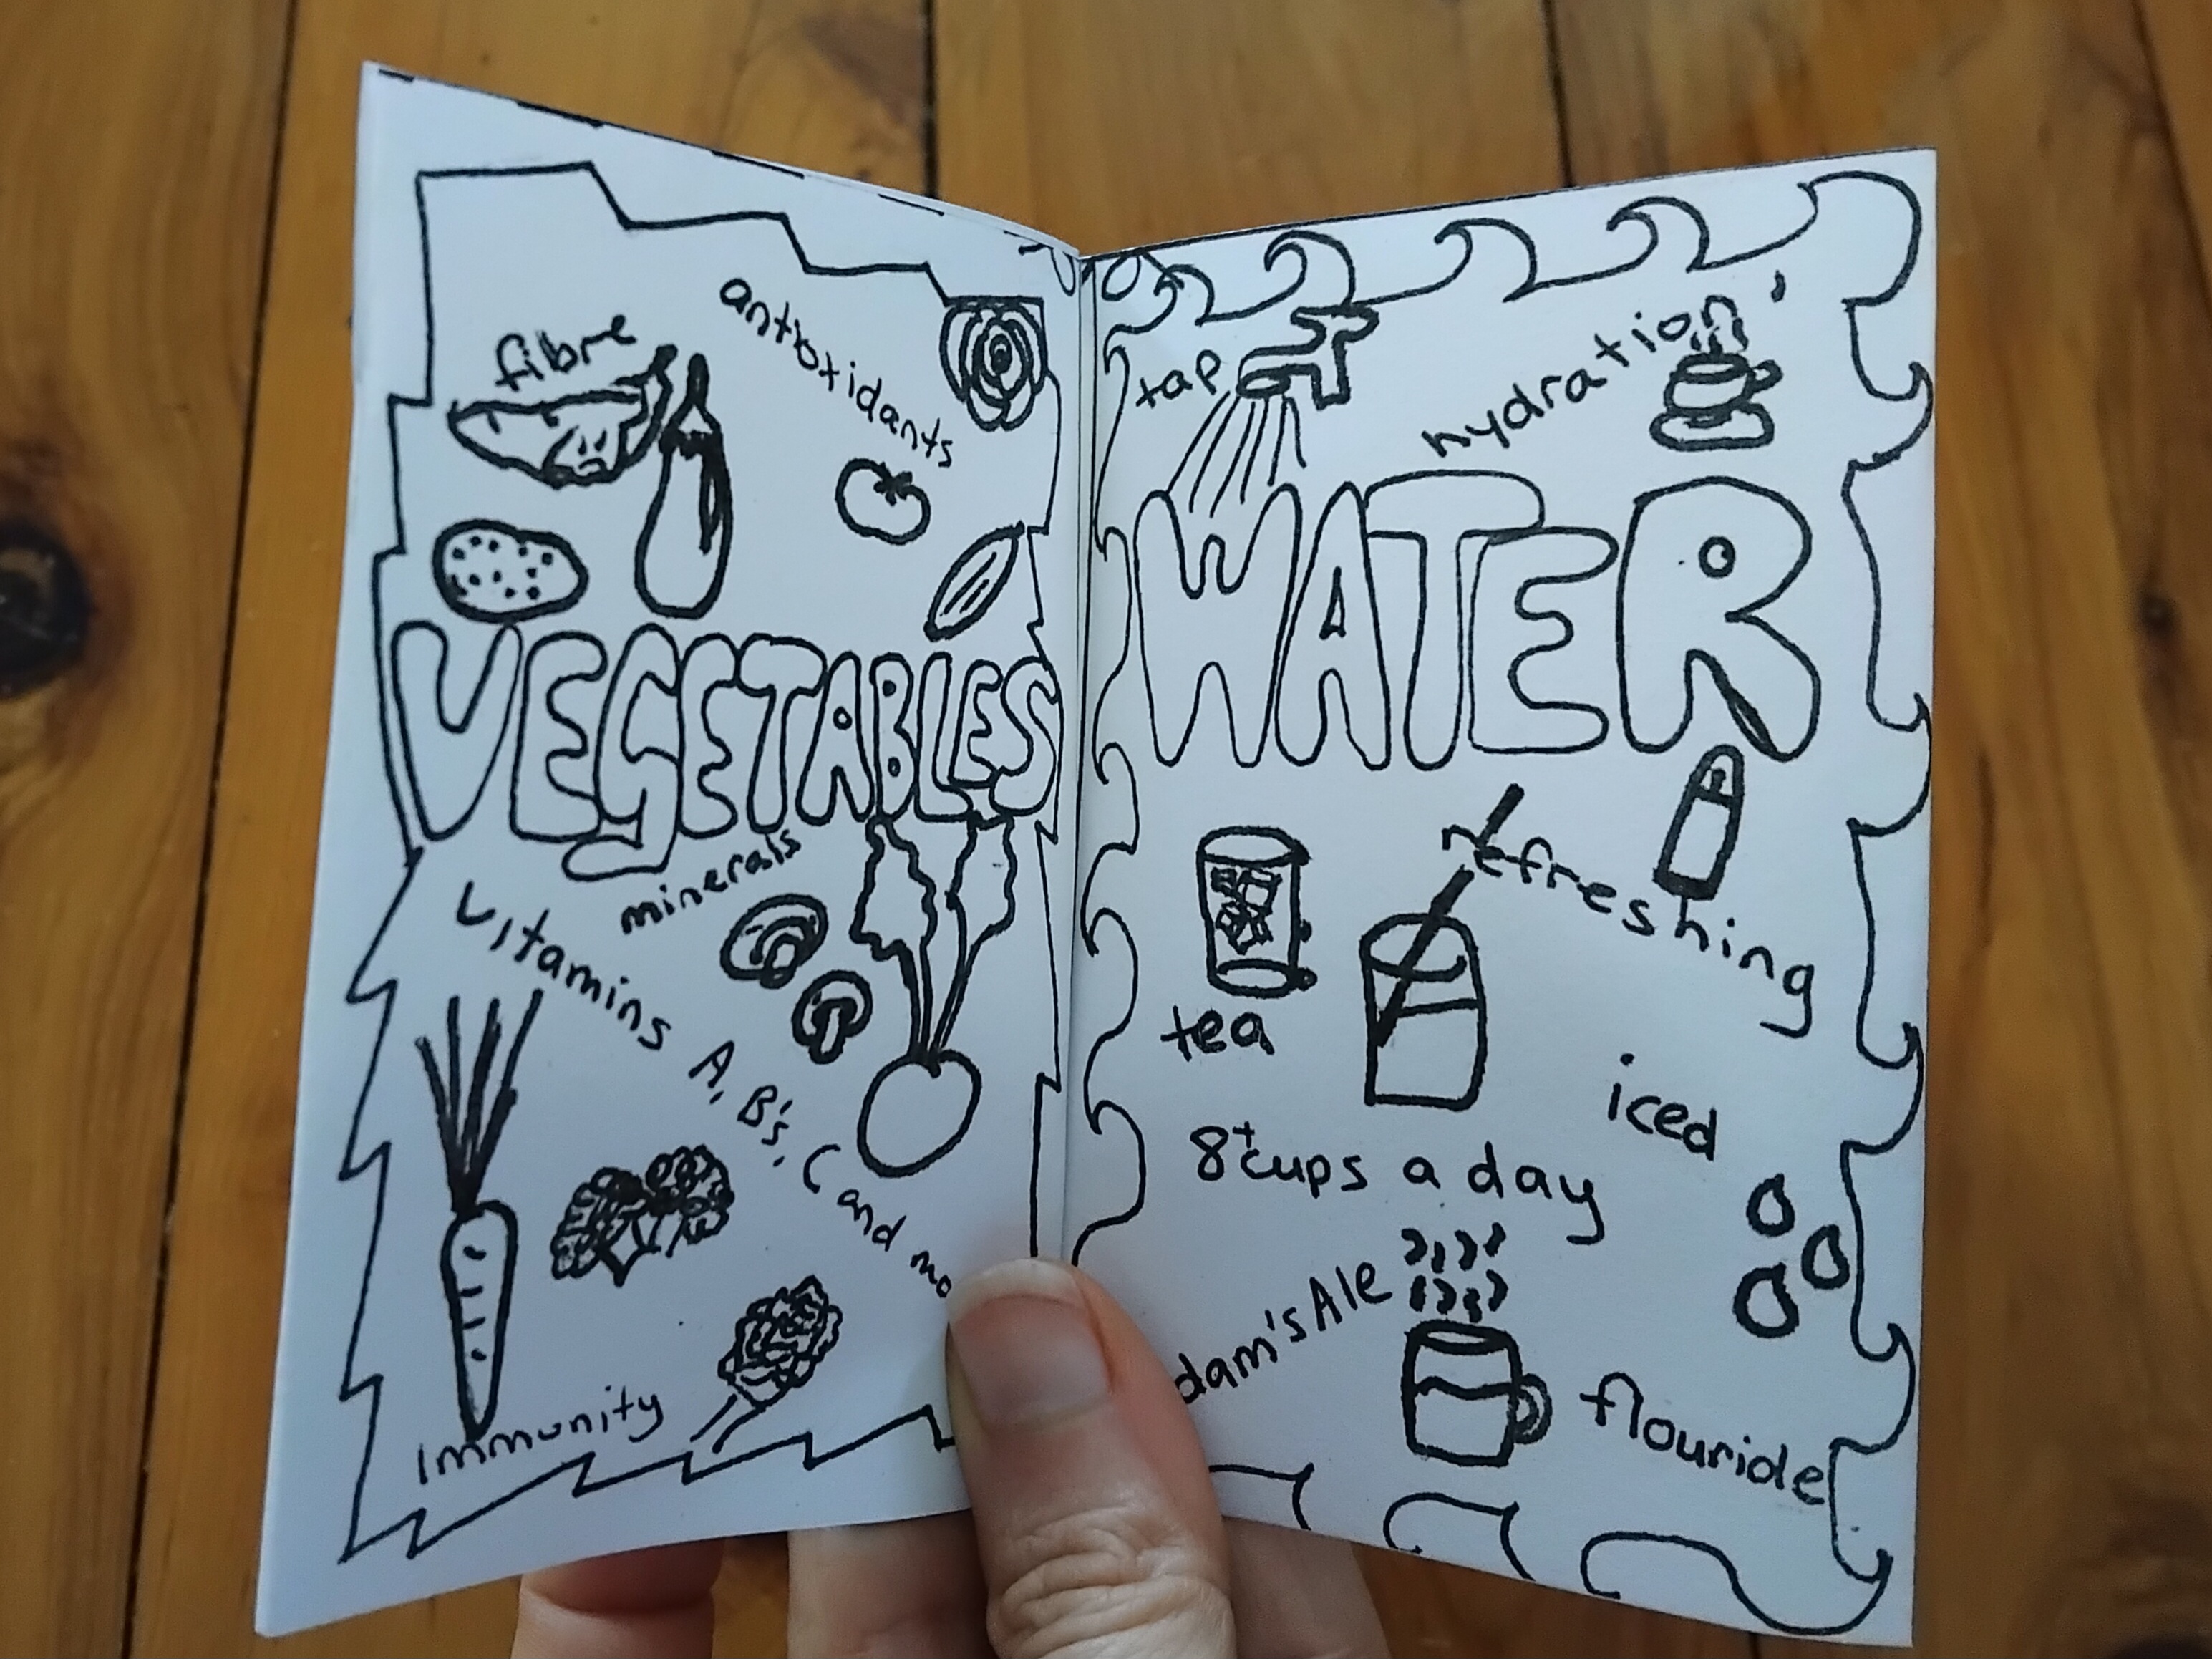 fibre
antioxidants
VEGETABLES
minerals
vitamins A, B's, C and mo
immunity
tap
hydration
WATER
refreshing
tea
iced
8+ cups a day
dam's Ale
flouride